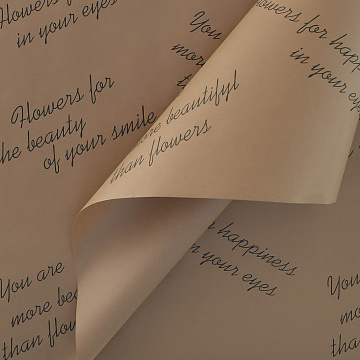 flowers for
in your eyes
You
more
th
flowers for happiness
in your eyes
Flowers for
the beauty
of your smile
more beautiful
than flowers
happiness
in your eyes
You are
more bea
than flow
You
mor
than